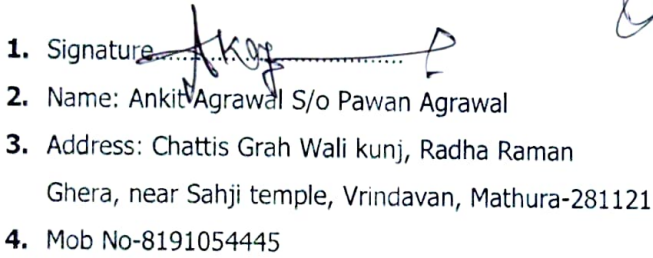 1. Signature....................
2. Name: Ankit Agrawal S/o Pawan Agrawal
3. Address: Chattis Grah Wali kunj, Radha Raman
Ghera, near Sahji temple, Vrindavan, Mathura-281121
4. Mob No-8191054445